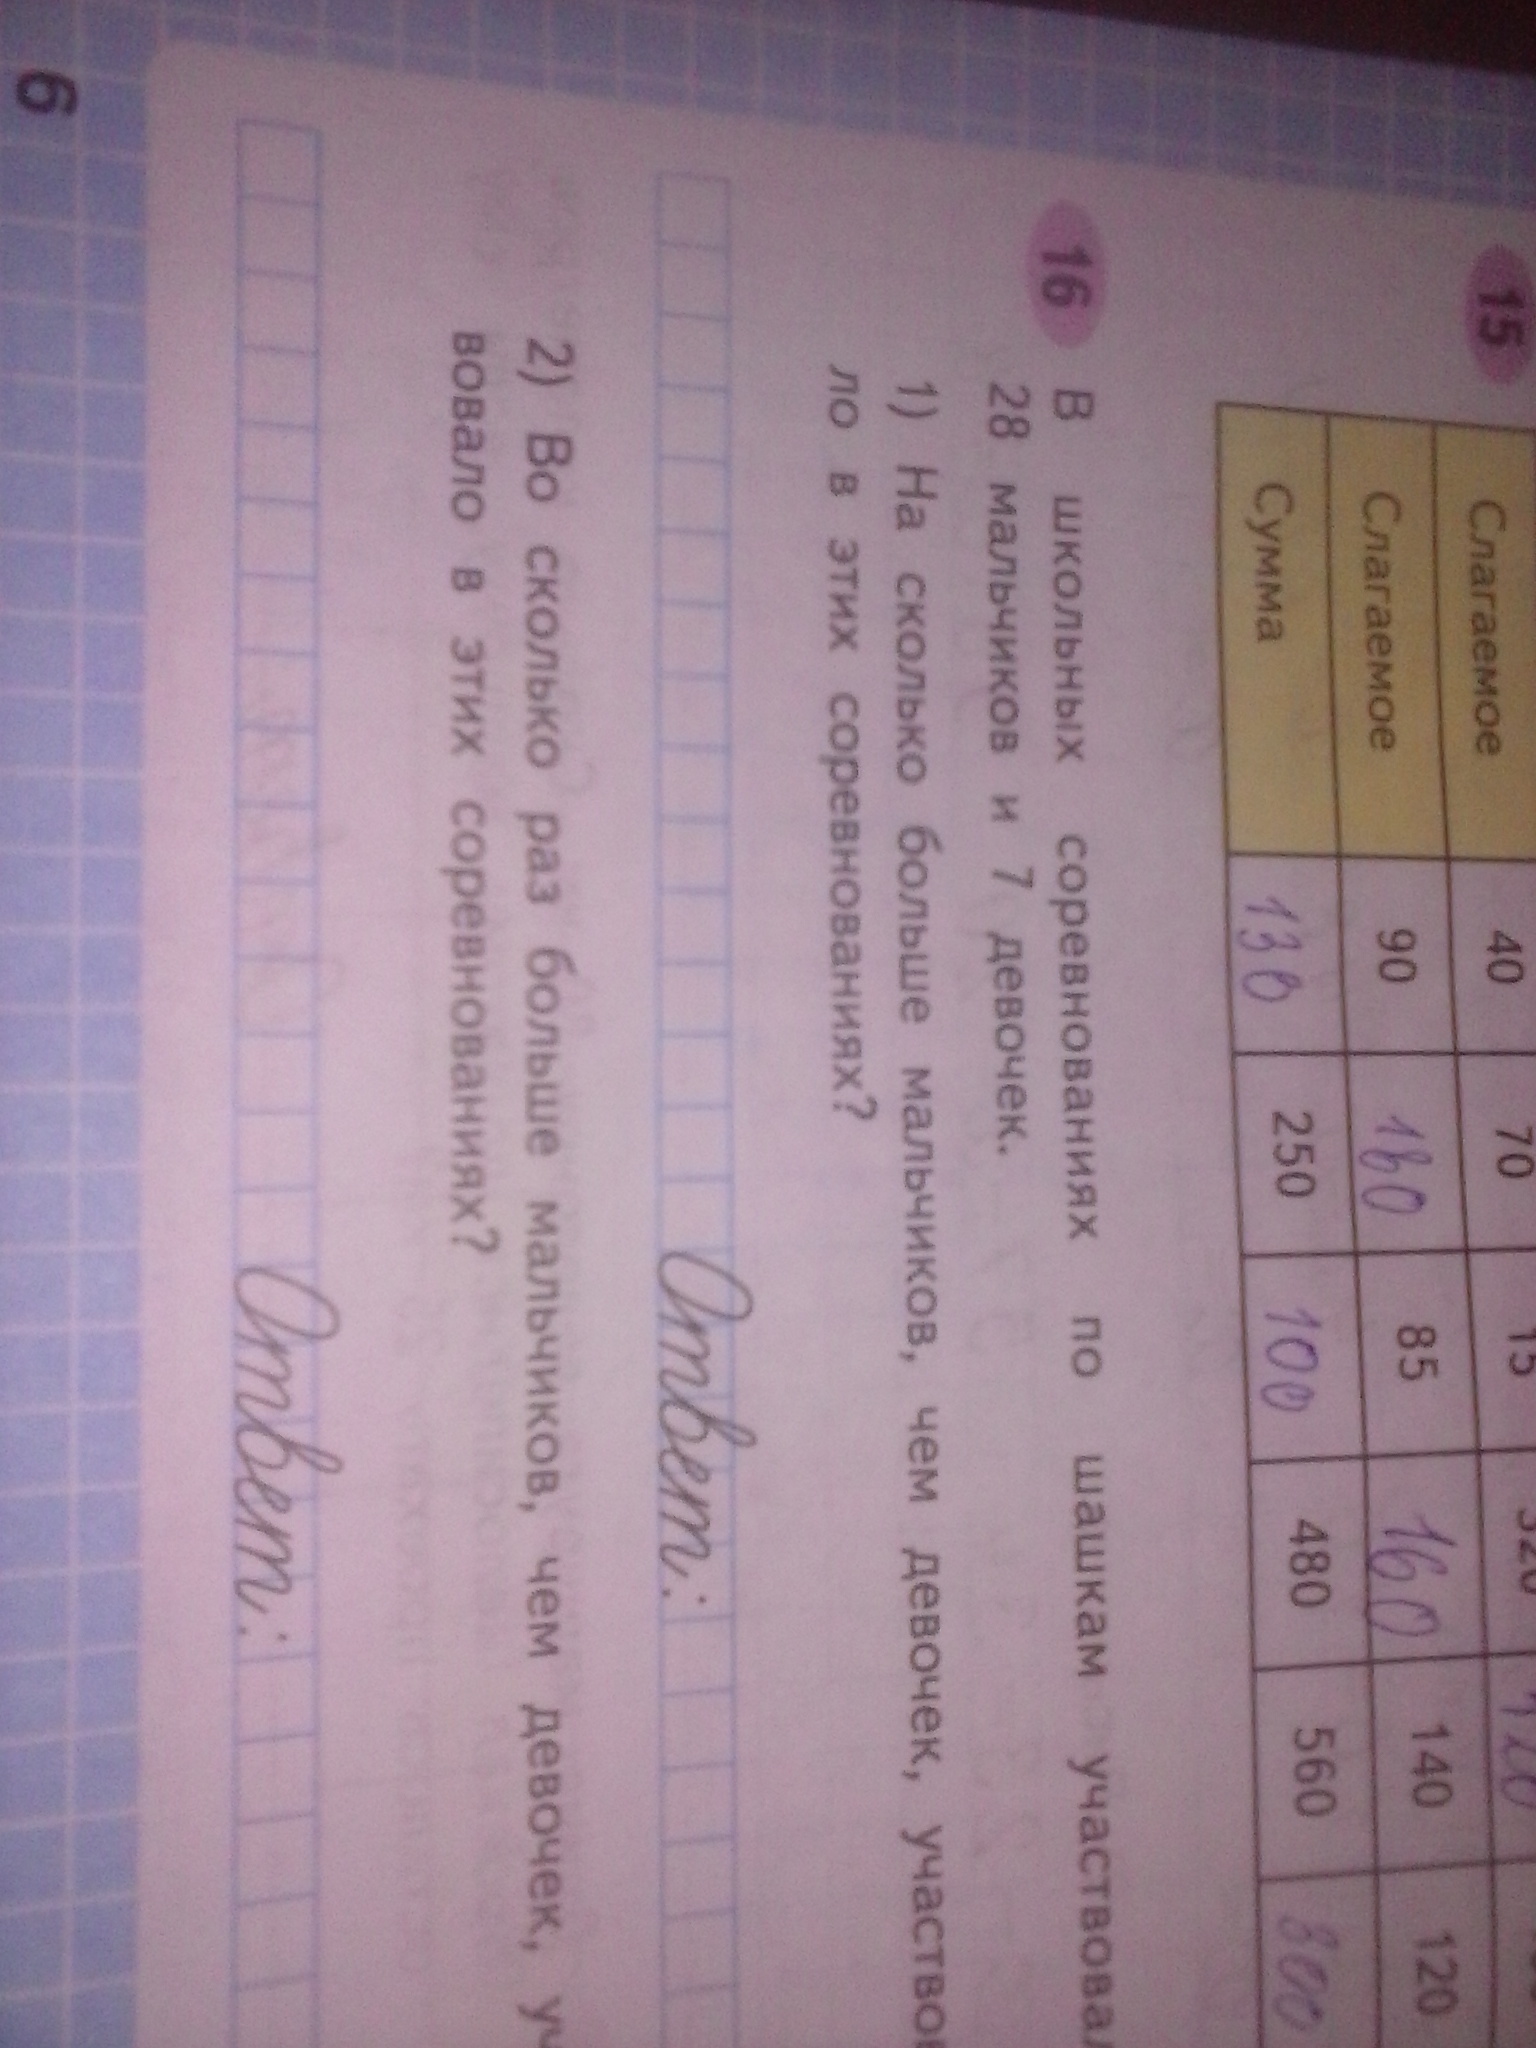 15
Слагаемое 40 70 15
Слагаемое 90 180 85 160 140 120
Сумма 130 250 100 480 560
16 В школьных соревнованиях по шашкам участвовал
28 мальчиков и 7 девочек.
1) На сколько больше мальчиков, чем девочек, участвов
ло в этих соревнованиях?
Ответ:
2) Во сколько раз больше мальчиков, чем девочек, уч
вовало в этих соревнованиях?
Ответ:
6